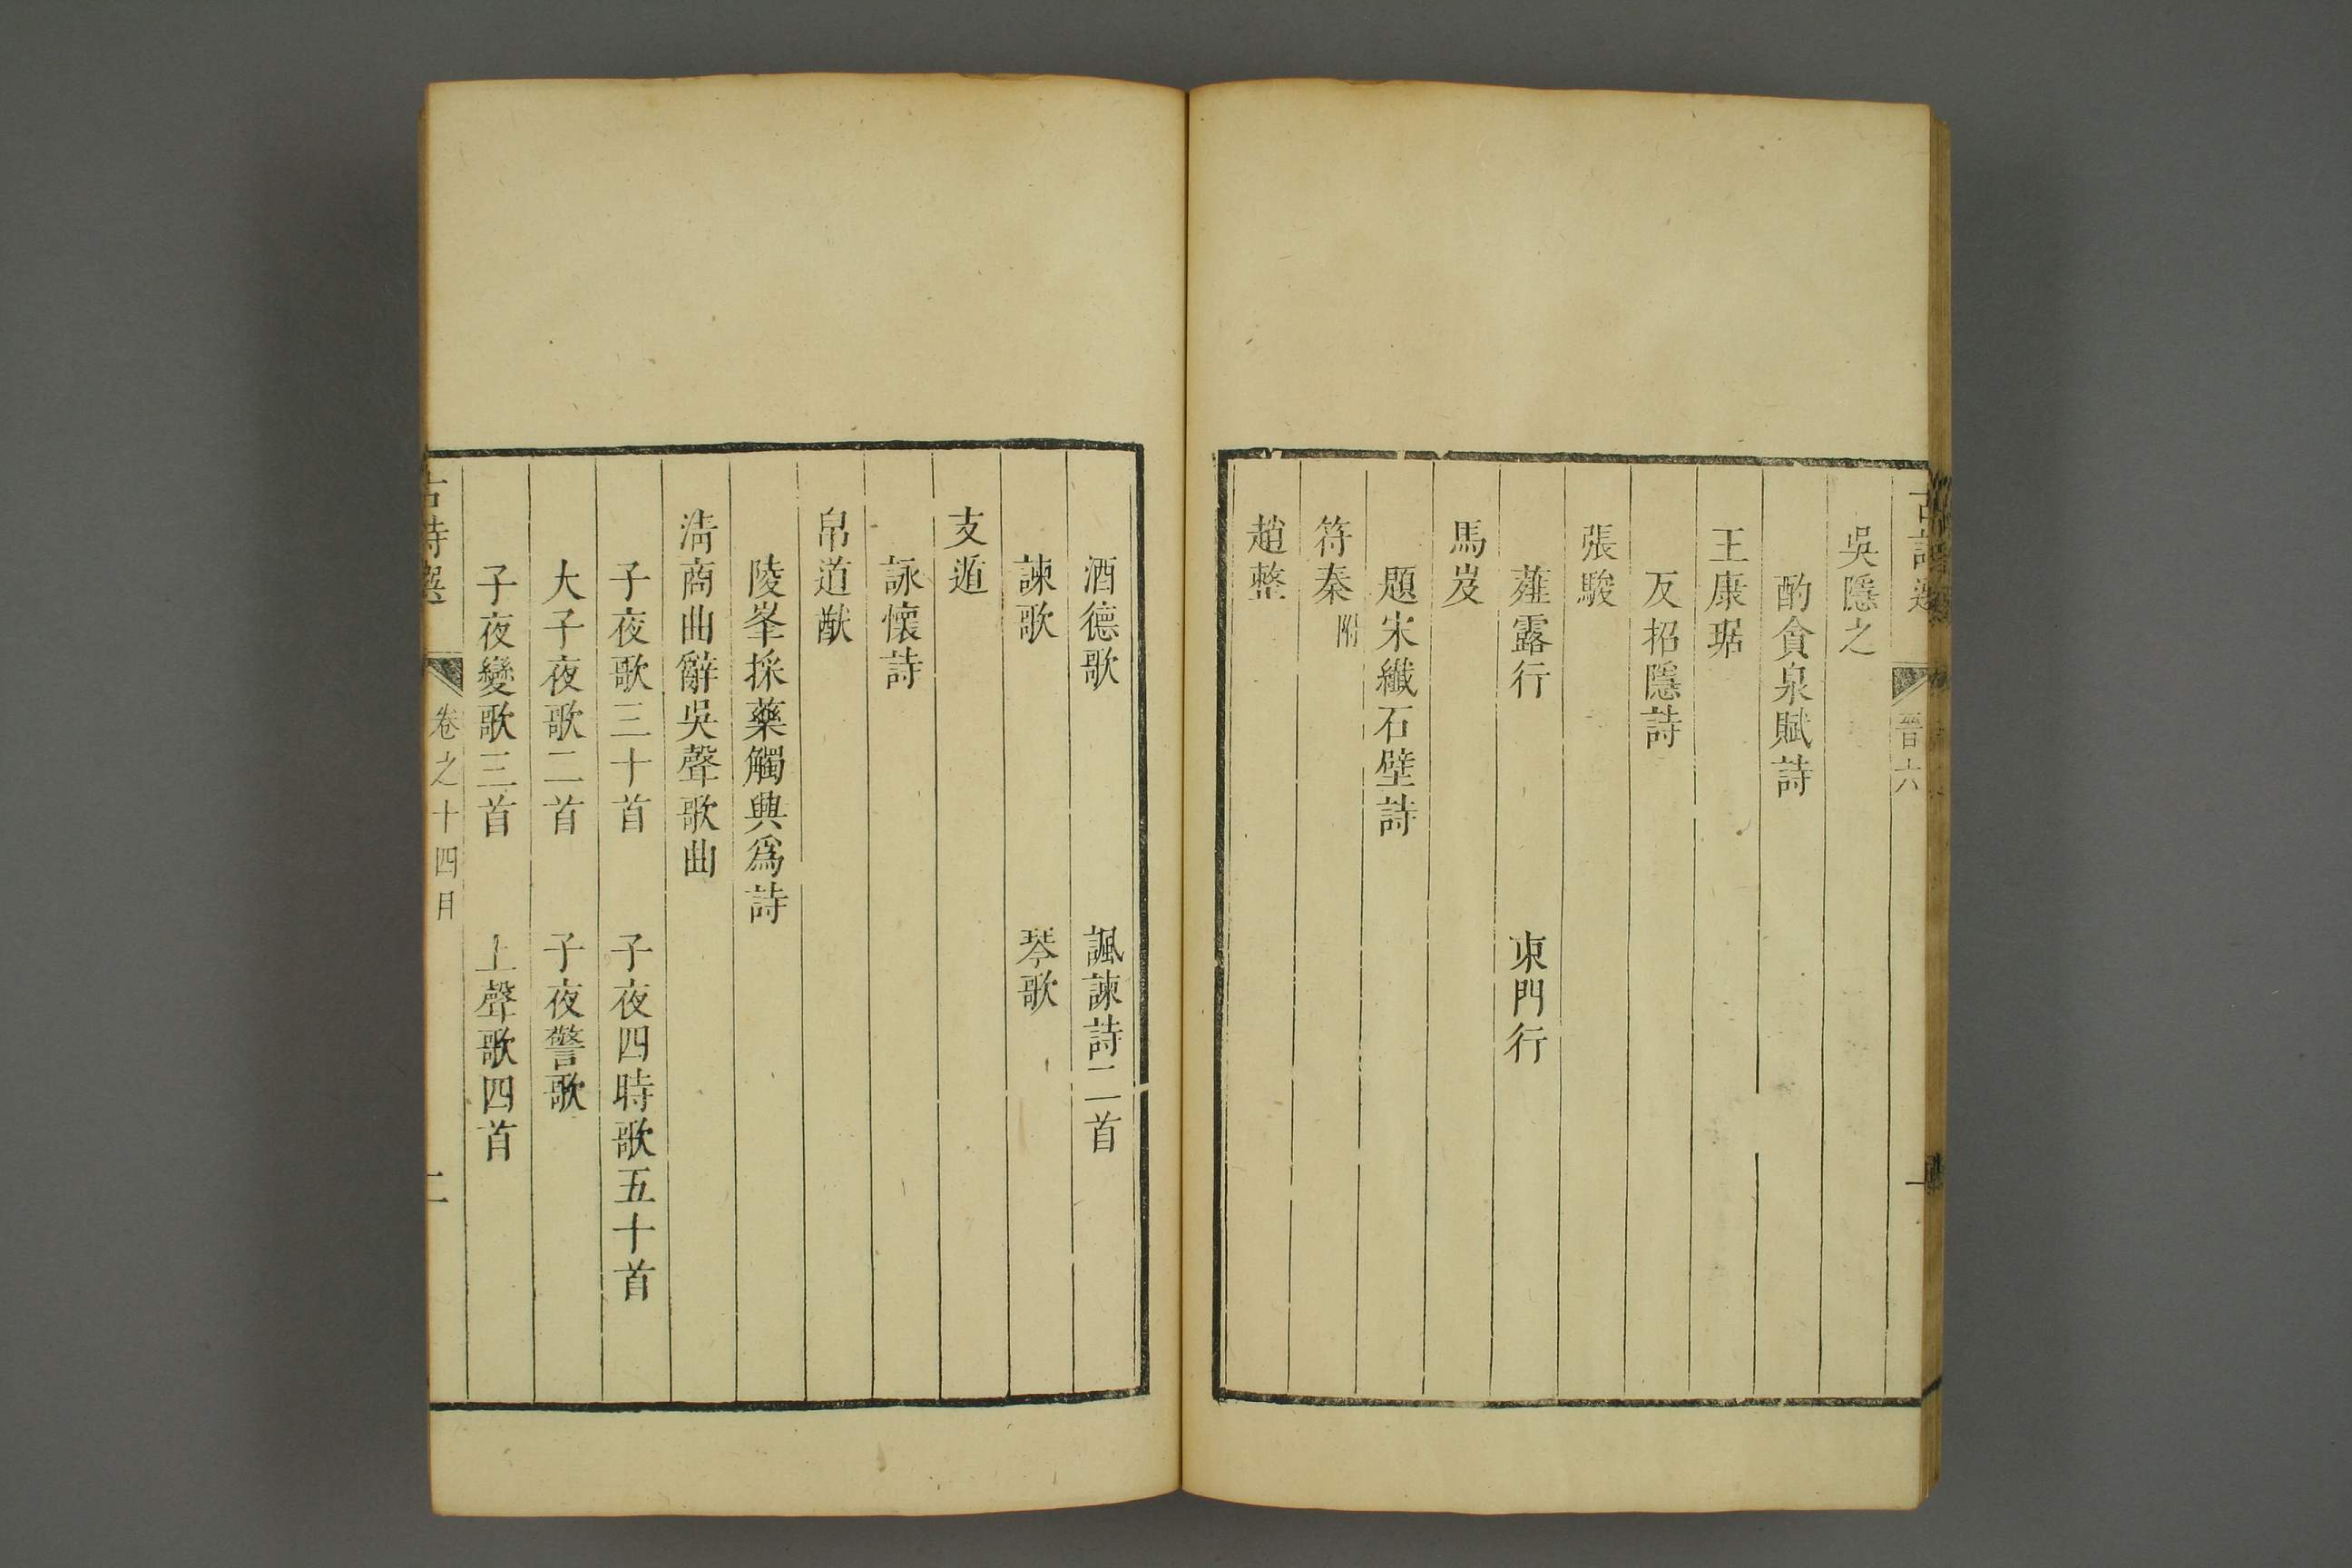 晉六
吳隱之
酌貪泉賦詩
王康琚
反招隱詩
張駿
薤露行　東門行
馬岌
題宋纖石壁詩
符秦附
趙整
酒德歌　諷諫詩二首
諫歌　琴歌
支遁
詠懷詩
帛道猷
陵峯採藥觸興爲詩
淸商曲辭吳聲歌曲
子夜歌三十首　子夜四時歌五十首
大子夜歌二首　子夜警歌
子夜變歌三首　上聲歌四首
古詩選　卷之十四目　二